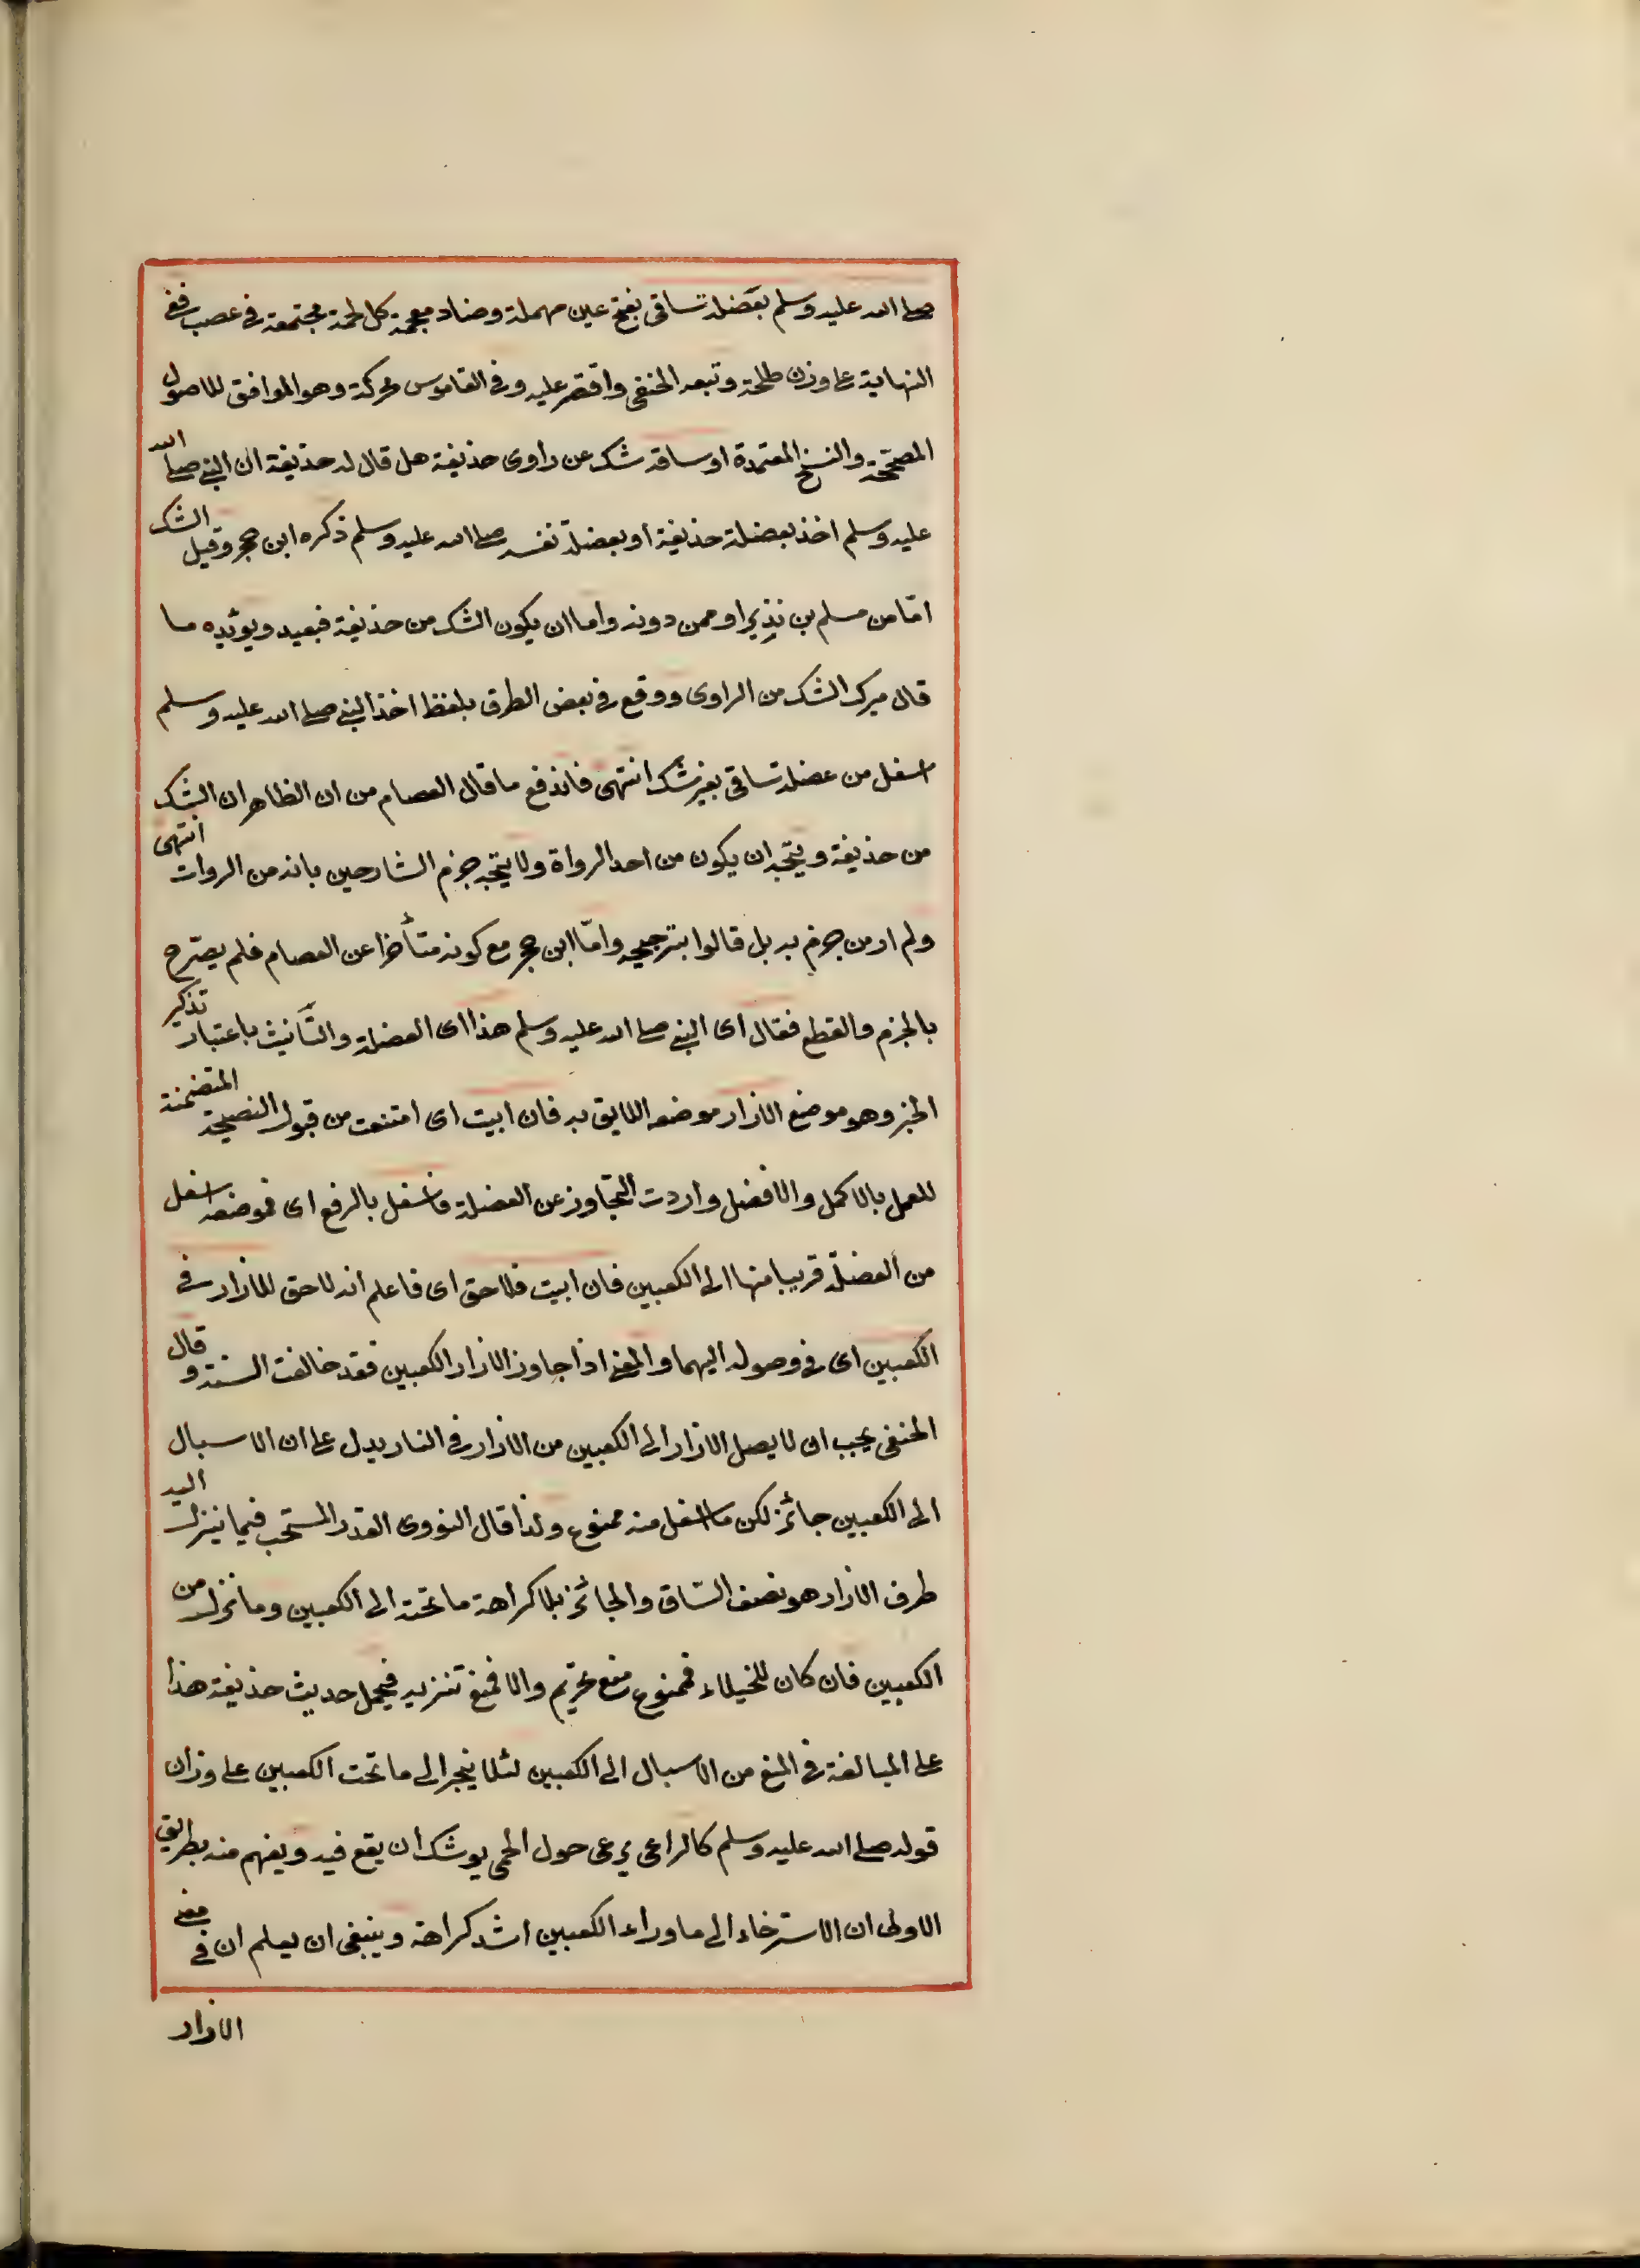 صلى الله عليه وسلم بعَضلة ساقى بفتح عين مهملة وضاد معجمة كل لحمة مجتمعة فى عصب ففى
النهاية على وزن طلحة وتبعه الحنفى واقتصر عليه وفى القاموس محركة وهو الموافق للاصول
المصححة والنسخ المعتمدة او ساقه شك عن راوى حذيفة هل قال له حذيفة ان النبى صلى الله
عليه وسلم اخذ بعضلة حذيفة او بعضلة نفسه صلى الله عليه وسلم ذكره ابن حجر وقيل الشك
امّا من مسلم بن نذير او ممن دونه واما ان يكون الشك من حذيفة فبعيد ويؤيده ما
قال ميرك الشك من الراوى ووقع فى بعض الطرق بلفظ اخذ النبى صلى الله عليه وسلم
اسفل من عضلة ساقى بغير شك انتهى فاندفع ما قال العصام من ان الظاهر ان الشك
من حذيفة ويتجه ان يكون من احد الرواة ولا يتجه جزم الشارحين بانه من الروات انتهى
ولم ار من جزم به بل قالوا بترجيحه وامّا ابن حجر مع كونه متأخرا عن العصام فلم يصرّح
بالجزم والقطع فقال اى النبى صلى الله عليه وسلم هذا اى العضلة والتأنيث باعتبار تذكير
الخبر وهو موضع الازار موضعه اللايق به فان ابيت اى امتنعت من قبول النصيحة المتضمنة
للعمل بالاكمل والافضل واردت التجاوز عن العضلة فاسفل بالرفع اى فموضعه اسفل
من العضلة قريبا منها الى الكعبين فان ابيت فلا حق اى فاعلم انه لا حق للازار فى
الكعبين اى فى وصوله اليهما والمعنى اذا جاوز الازار الكعبين فقد خالفت السنة وقال
الحنفى يجب ان لا يصل الازار الى الكعبين من الازار فى النار يدل على ان الاسبال
الى الكعبين جائز لكن ما اسفل منه ممنوع ولذا قال النووى القدر المستحب فيما ينزل اليه
طرف الازار هو نصف السّاق والجائز بلا كراهة ما تحته الى الكعبين وما نزل من
الكعبين فان كان للخيلاء فممنوع منع تحريم والا فمنع تنزيه فيحمل حديث حذيفة هذا
على المبالغة فى المنع من الاسبال الى الكعبين لئلا ينجر الى ما تحت الكعبين على وزان
قوله صلى الله عليه وسلم كالراعى يرعى حول الحمى يوشك ان يقع فيه ويفهم منه بطريق
الاولى ان الاسترخاء الى ما وراء الكعبين اشد كراهة وينبغى ان يعلم ان فى معنى
الازار